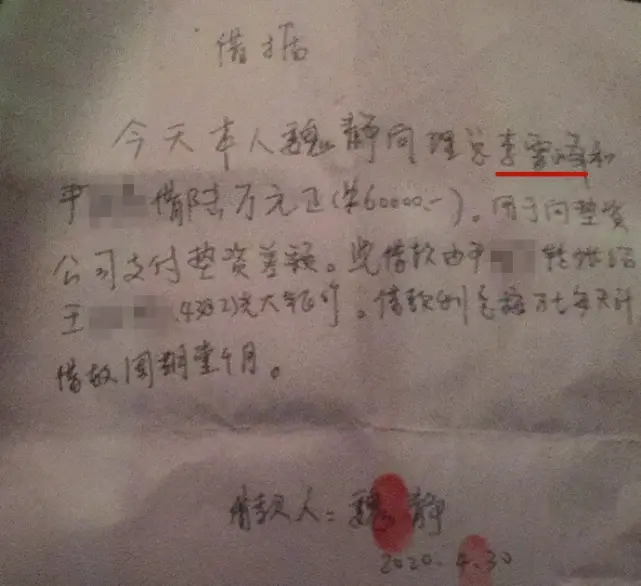 借据
今天本人魏静向理总李雪峰和
平 借陆万元正(¥60000.-)。用于向垫资
公司支付垫资差额。此借款由平 转账给
王 (4382)光大银行。借款利息按万七每天计
借款周期壹个月。
借款人：魏静
2020.4.30